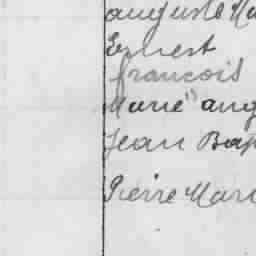 auguste Ma
Ernest
francois
Marie ang
Jean Bap
Pierre Mari